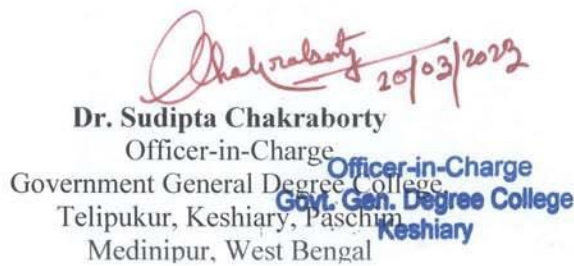 Chakraborty
20/03/2023
Dr. Sudipta Chakraborty
Officer-in-Charge
Government General Degree College
Telipukur, Keshiary, Paschim
Medinipur, West Bengal
Officer-in-Charge
Govt. Gen. Degree College
Keshiary